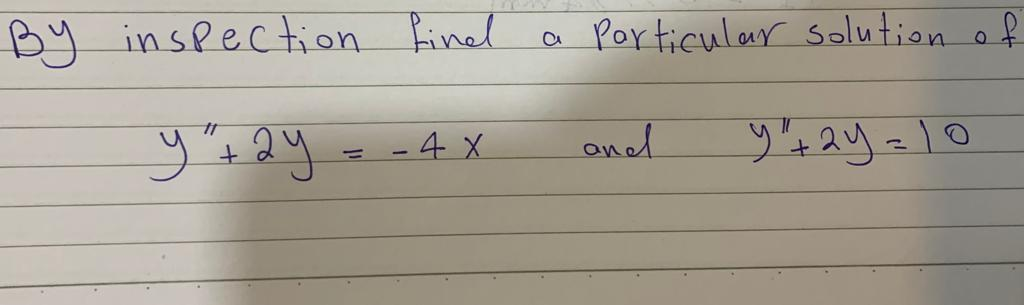 By inspection find a particular solution of
y'' + 2y = -4x and y'' + 2y = 10